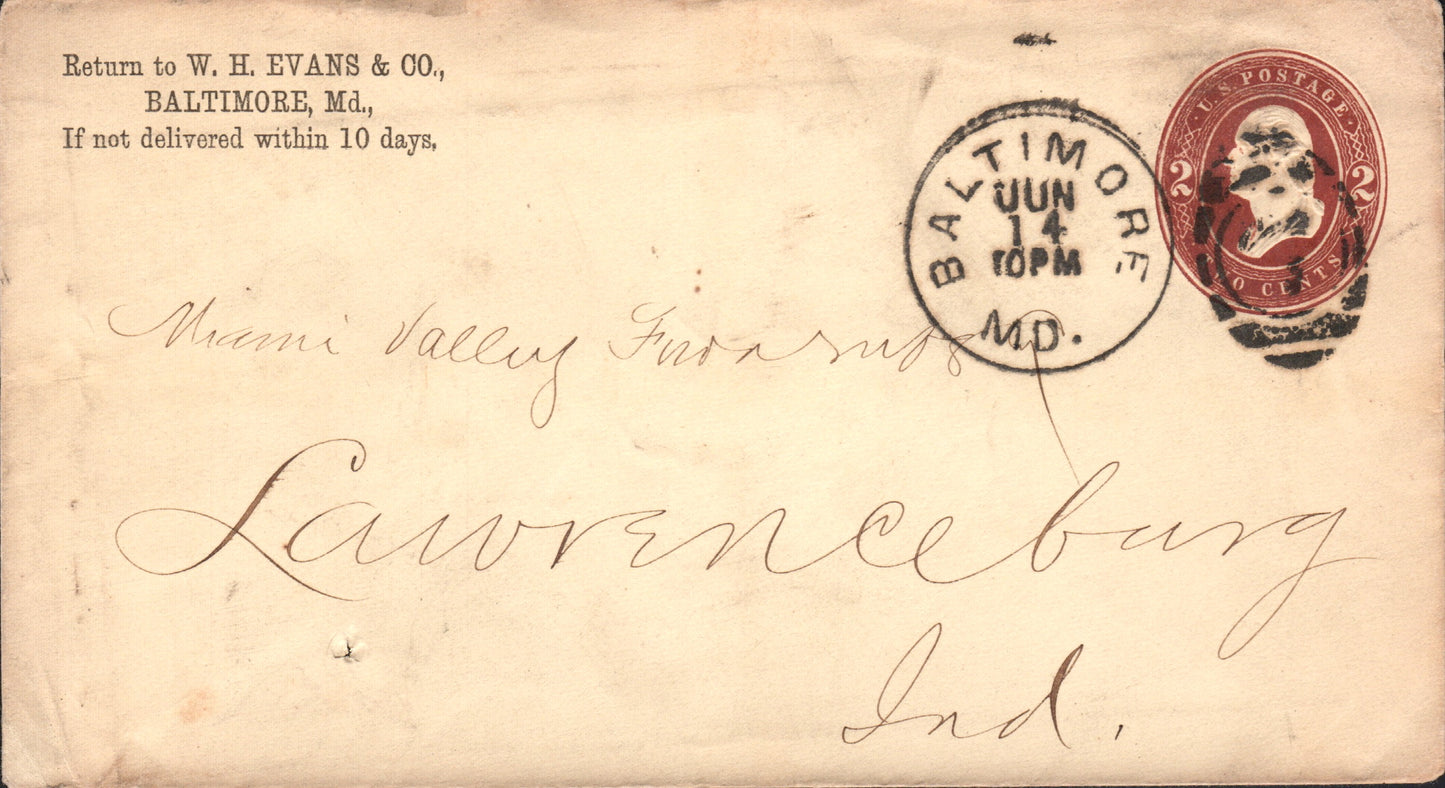 Return to W. H. EVANS & CO.,
BALTIMORE, Md.,
If not delivered within 10 days.
U.S. POSTAGE
2 2
CENTS
BALTIMORE
JUN
14
10PM
MD.
Miami Valley
Lawrenceburg
Ind.